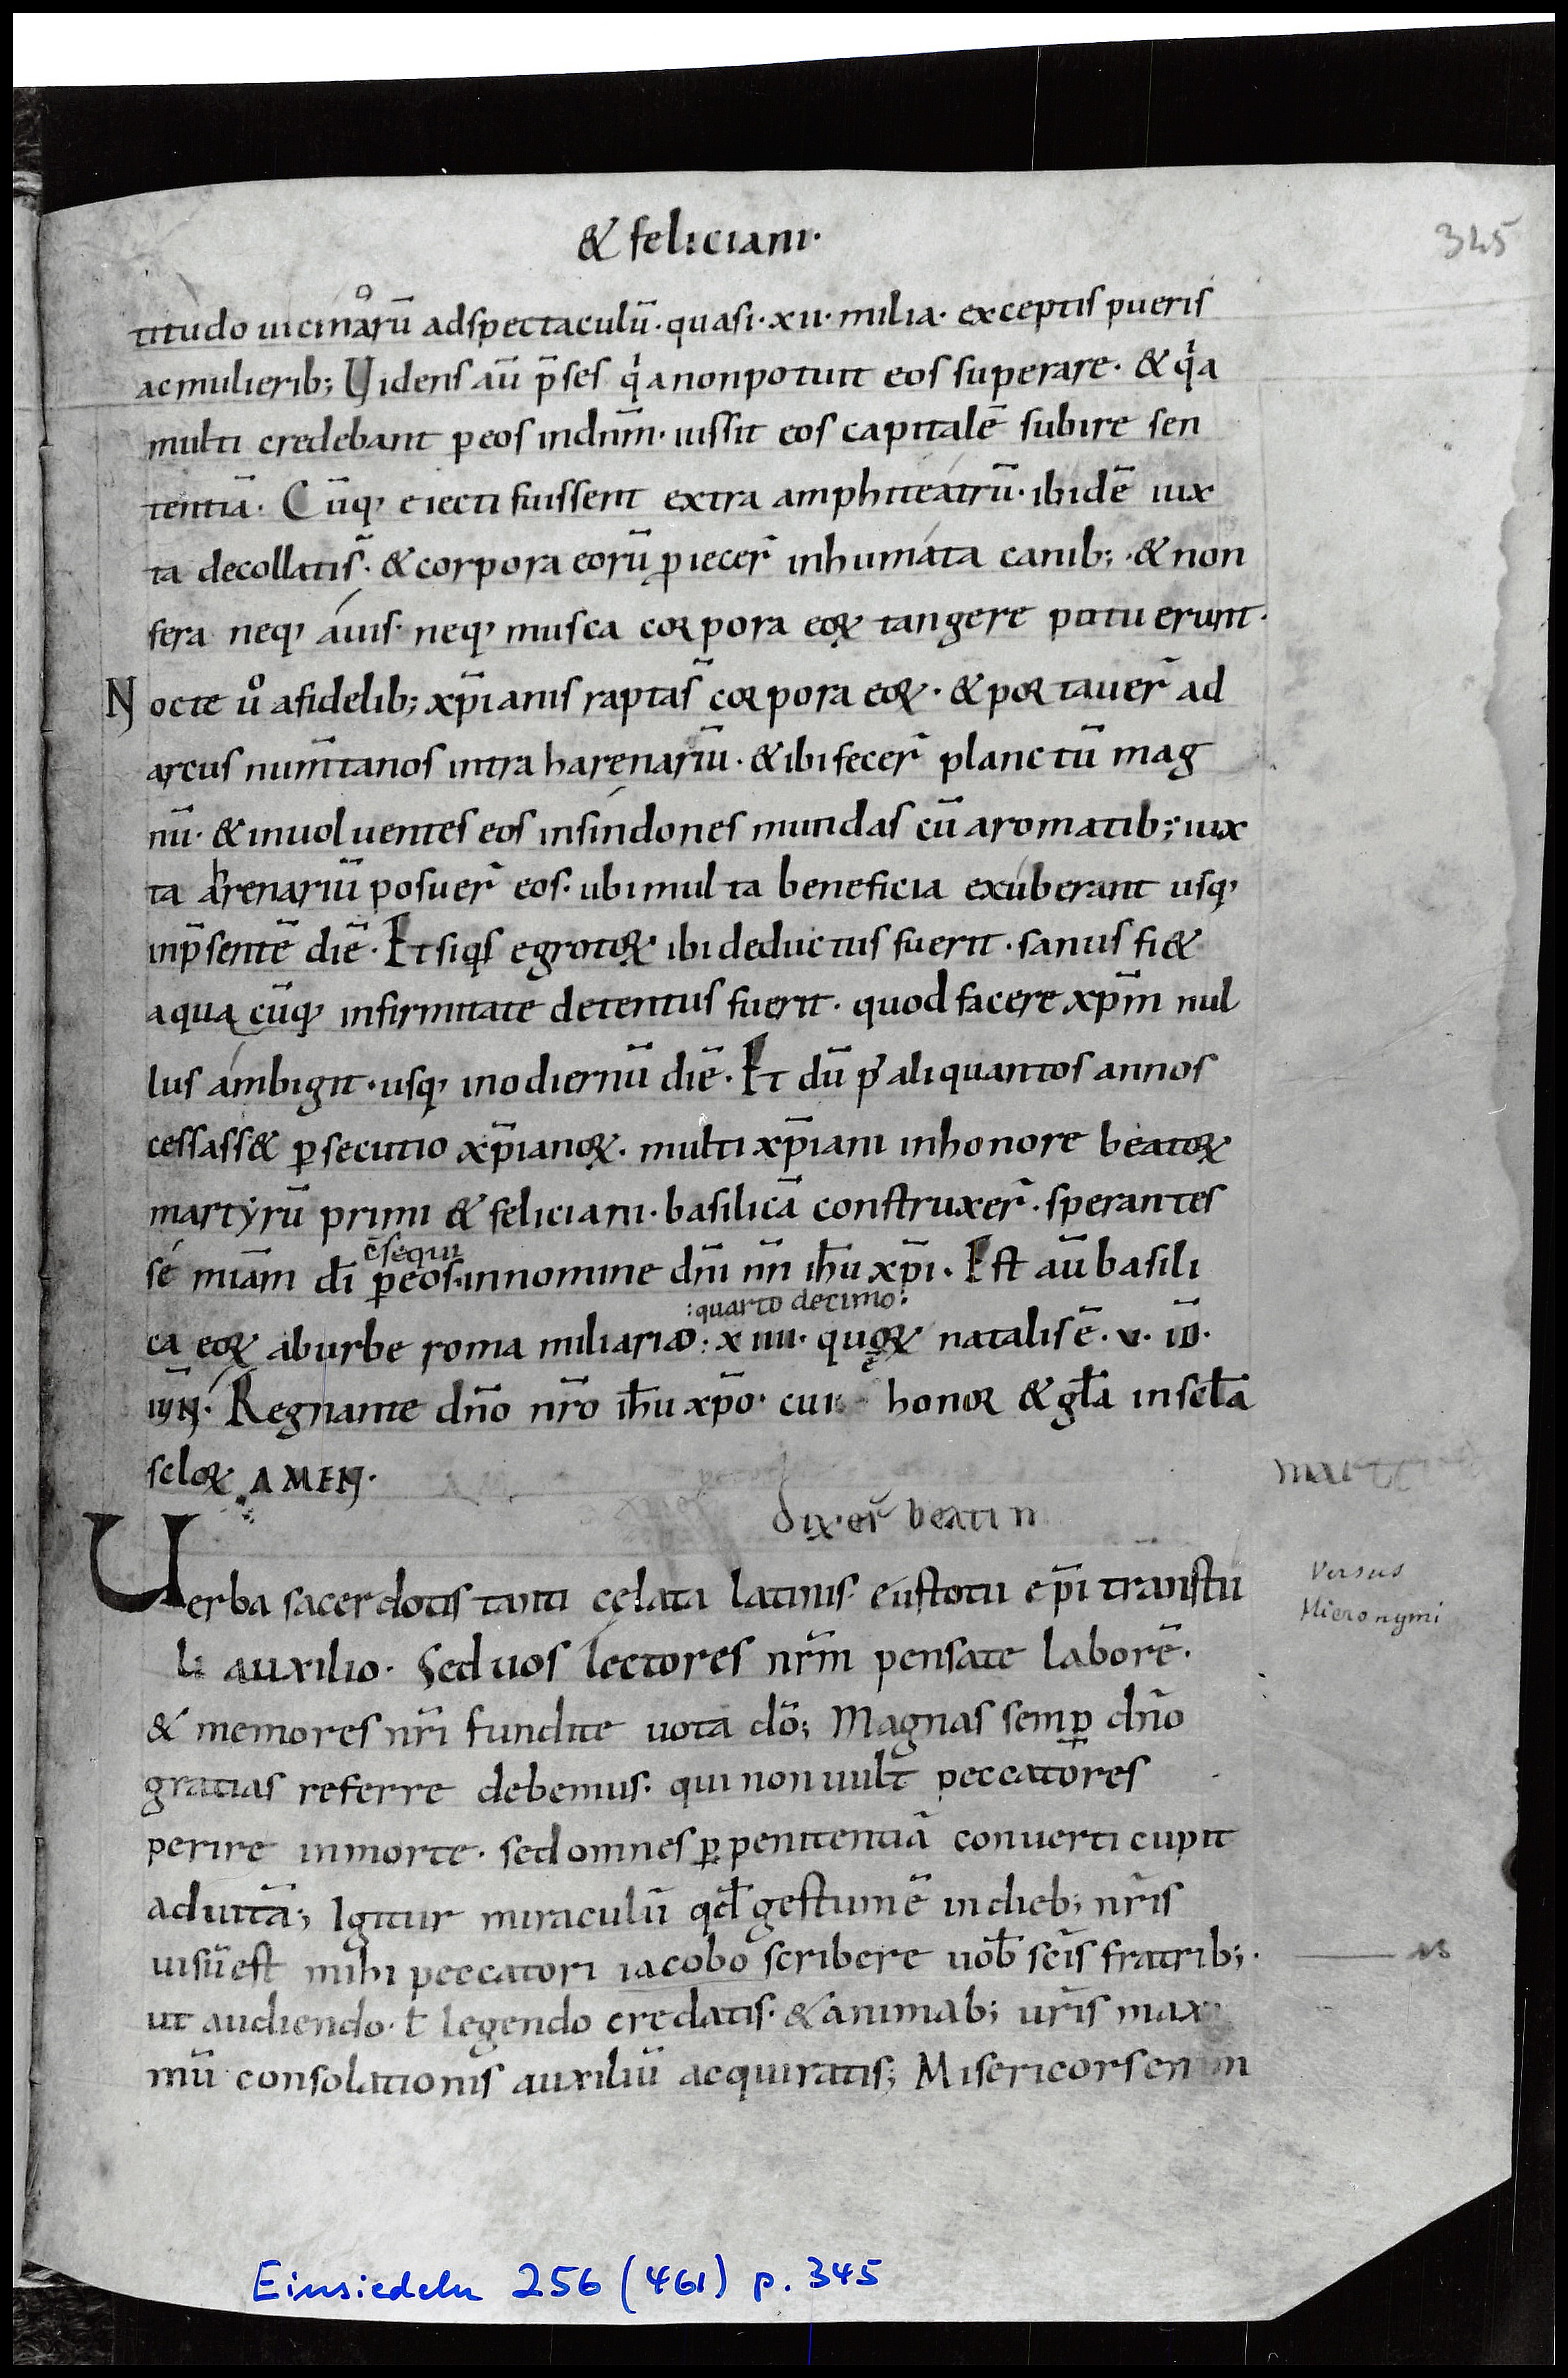 & feliciani·
345
titudo uicinarū adspectaculū· quasi· xii· milia· exceptis pueris
ac mulierib; Uidens aū p̄ses qͥa nonpotuit eos superare· & qͥa
multi credebant ꝑeos indnm̄· iussit eos capitalē subire sen
tentiā· Cūq; eiecti fuissent extra amphiteátrū· ibidē iux
ta decollatis̄· & corpora eorū ꝓiecer̄ inhumáta canib;· & non
fera neq; áuis· neq; musca corpora eoꝝ tangere potuerunt·
Nocte uͦ afidelib; xp̄ianis raptas̄ corpora eoꝝ· & portauer̄ ad
arcus num̄tanos intra harenariū· & ibi fecer̄ planctū mag
nū· & inuoluentes eos insíndones mundas cū aromatib; iux
ta arenariū posuer̄ eos· ubi multa beneficia exúberant usq;
inp̄sentē diē· Et siqͥs egrotoꝝ ibi deductus fuerit· sanus fi&
aqua cūq; infirmitate detentus fuerit· quod facere xpm̄ nul
lus ámbigit· usq; inodiernū diē· Et dū p̄ aliquantos annos
cessass& ꝑsecutio xp̄ianoꝝ· multi xp̄iani inhonore beatoꝝ
martyrū primi & feliciani· basilicā construxer̄· sperantes
c̄sequi
sé miam̄ dī ꝑeos· innomine dnī nrī ih̄u xp̄i· Est aū basili
:quarto decimo:
ca eoꝝ áburbe roma miliario: xiiii· quoꝝ natalis ē· v· id̄·
iun̄· Regnante dnō nrō ih̄u xp̄o· cui ē honor & gl̄a inscl̄a
scloꝝ AMEN·
dixer̄ beati n
Uerba sacerdotis tanti cęlata latinis· eústotii ep̄i transtu
li auxilio· Sed uos léctores nrm̄ pensate laborē·
& memores nrī fundite uota dō; Magnas semꝑ dnō
gratias referre debemus· qui non uult peccatores
perire inmorte· sed omnes ꝑ penitentiā conuerti cupit
aduitā; Igitur miraculū qd̄ gestum ē indieb; nrīs
uisū est mihi peccatori iacobo scribere uob̄ scīs fratrib;·
ut audiendo· ł legendo credatis· & animab; urīs maxi
mū consolationis auxiliū acquiratis; Misericors enim
Versus
Hieronymi
Einsiedeln 256 (461) p. 345